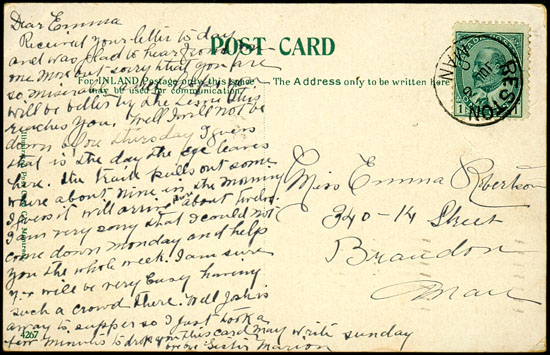 Dear Emma
Received your letter to day
and was glad to hear from
one Miss but sorry that you are
so miserable. hope you
will be better by the time this
reaches you. Well I will not be
down alone thursday I guess
that is the day the leaves
here. the train pulls out some
where about nine in the morning
I guess it will arrive there about twelve.
I am very sory that I could not
come down monday and help
you the whole week. I am sure
you will be very busy having
such a crowd there. Well Jack is
away to supper so I just took a
few minutes to drop you this card may write sunday
your Sister Marion
POST CARD
For INLAND Postage only this space
may be used for communication.
The Address only to be written here.
Miss Emma Robertson
340-14 Street
Brandon
Man
RESTON
MAN
1
1
4267
Montreal